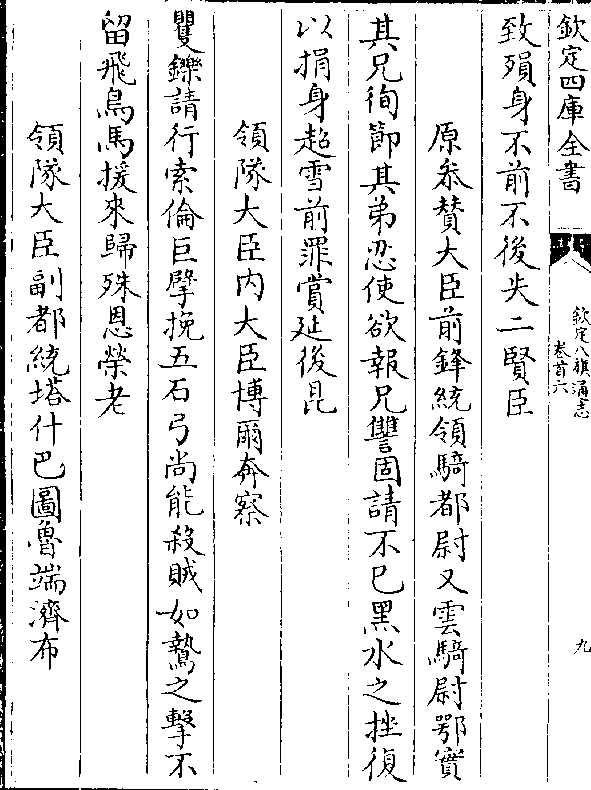 欽定四庫全書
欽定八旗通志
卷首六
九
致殞身不前不後失二賢臣
原叅賛大臣前鋒統領騎都尉又雲騎尉鄂實
其兄徇節其弟忍使欲報兄讐固請不已黑水之挫復
以捐身超雪前罪賞延後昆
領隊大臣内大臣博爾奔察
矍鑠請行索倫巨擘挽五石弓尚能殺賊如鷙之擊不
留飛鳥馬援來歸殊恩榮老
領隊大臣副都統塔什巴圖魯端濟布